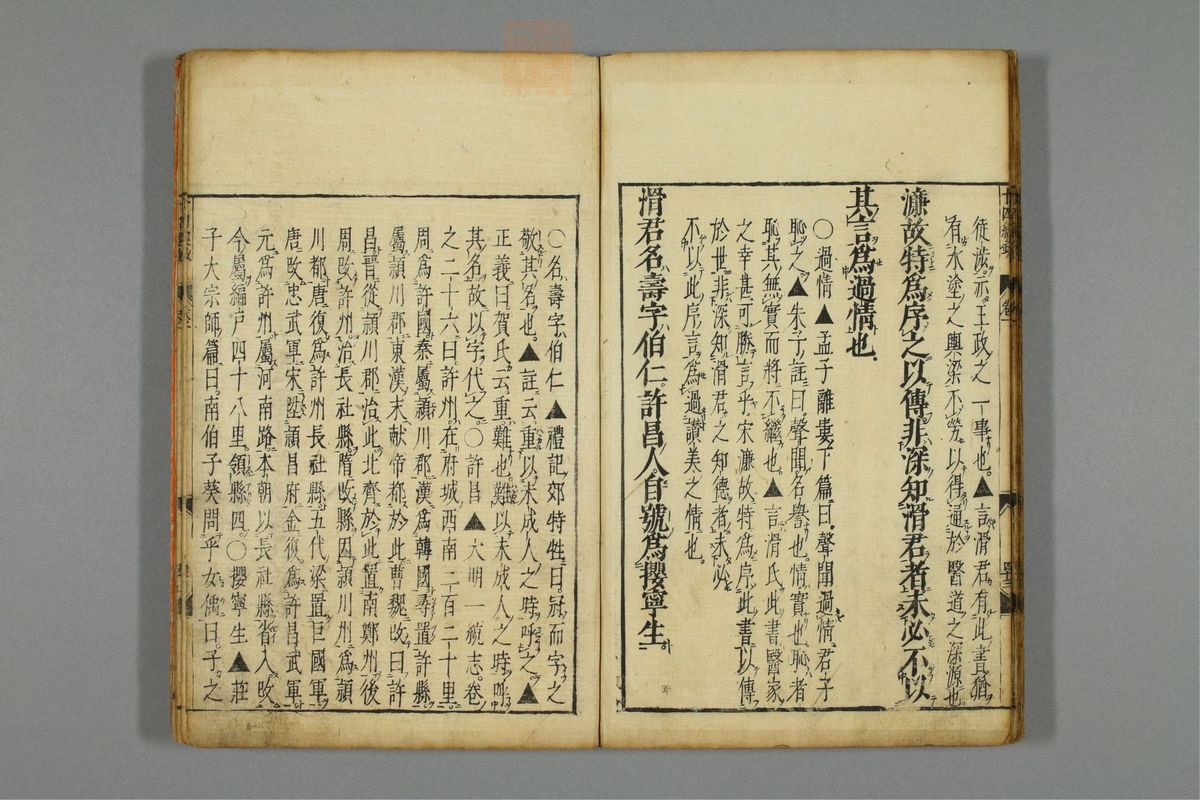 徒涉亦王政之一事也▲言滑君有此書猶
有水塗之輿梁不勞以得遍於醫道之深源也
濂故特爲序之以傳非深知滑君者未必不以
其言爲過情也
〇過情▲孟子離婁下篇曰聲聞過情君子
恥之▲朱子註曰聲聞名譽也情實也恥者
恥其無實而將不繼也▲言滑氏此書醫家
之幸甚可勝言乎宋濂故特爲序此書以傳
於世非深知滑君之知德者未必
不以此序言爲過讃美之情也
滑君名壽字伯仁許昌人自號爲攖寧生
〇名壽字伯仁▲禮記郊特牲曰冠而字之
敬其名也▲註云重以未成人之時呼之▲
正義曰賀氏云重難也難以未成人之時呼
其名故以字代之〇許昌▲大明一統志卷
之二十六曰許州在府城西南二百二十里
周爲許國秦屬潁川郡漢爲韓國尋置許縣
屬潁川郡東漢末献帝都於此曹魏改曰許
昌晋從潁川郡治此北齊於此置南鄭州後
周改許州治長社縣隋改縣因潁川州爲潁
川都唐復爲許州長社縣五代梁置巨國軍
唐改忠武軍宋陞潁昌府金復爲許昌武軍
元爲許州屬河南路本朝以長社縣省入改
今屬編户四十八里領縣四〇攖寧生▲莊
子大宗師篇曰南伯子葵問乎女偊曰子之